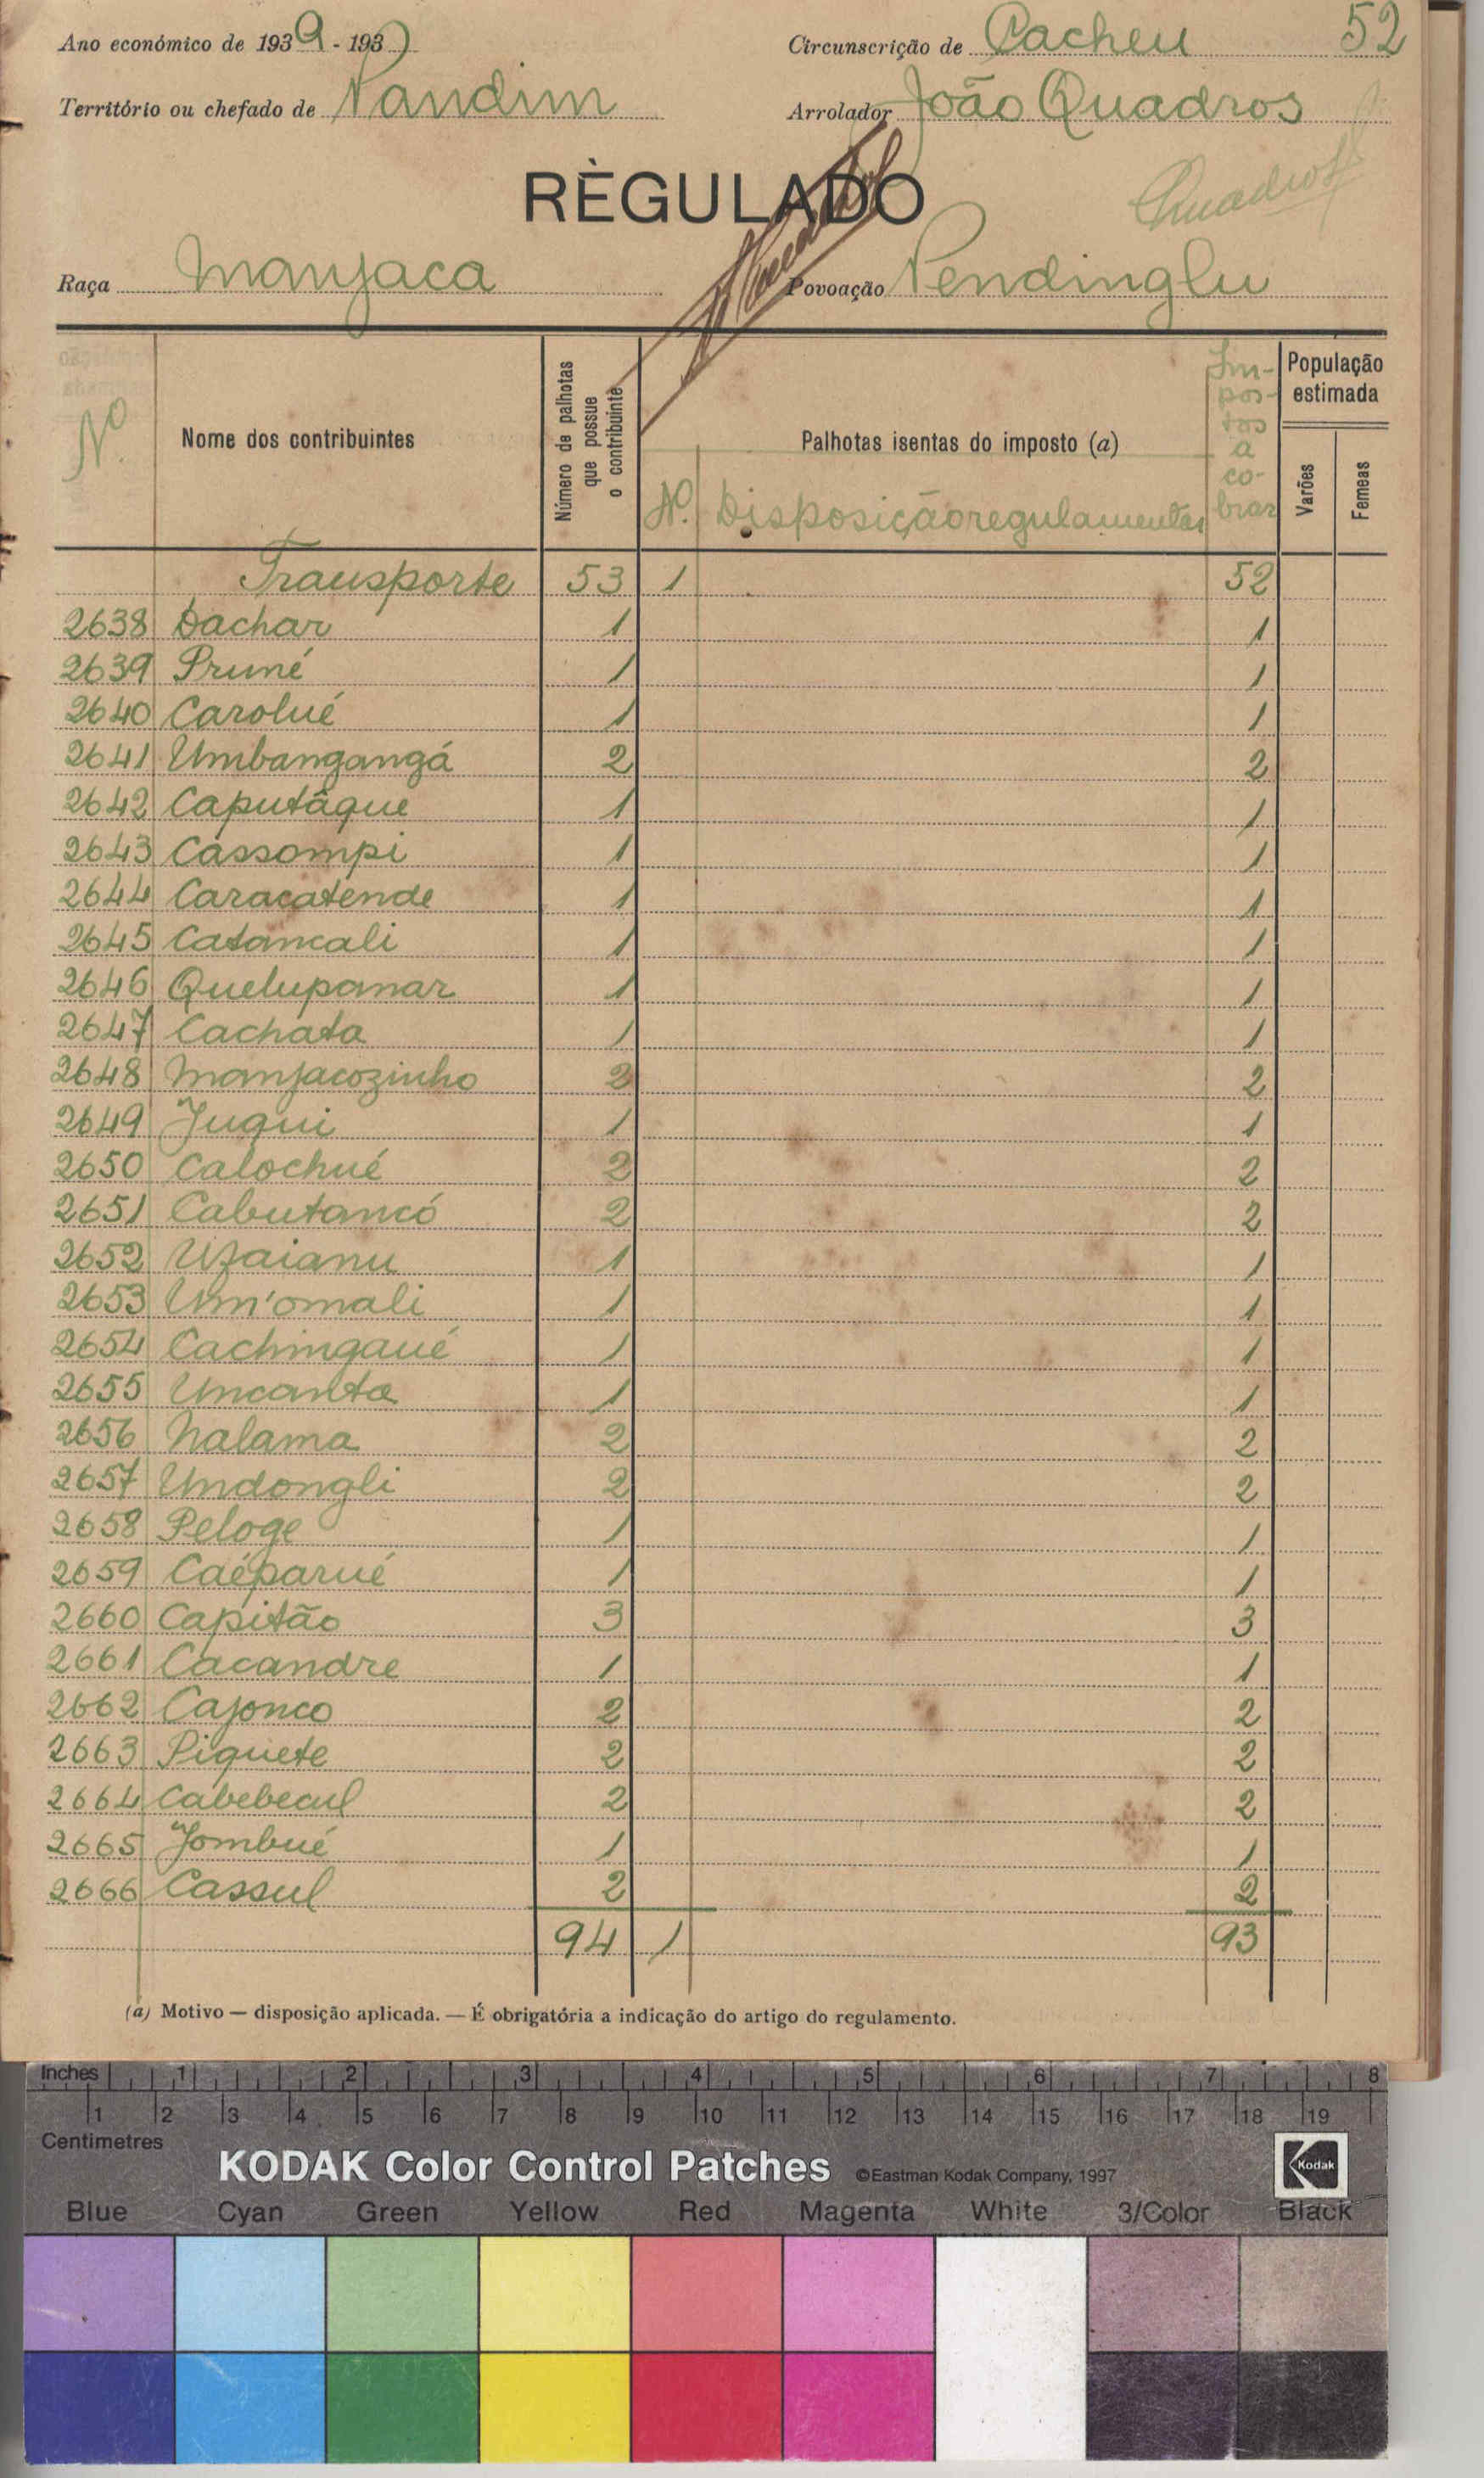 Ano económico de 1939 - 193
Circunscrição de Cacheu 52
Território ou chefado de Pandim
Arrolador João Quadros
RÈGULADO
Quadros
Raça Manjaca
Povoação Pendinglu
Nº
Nome dos contribuintes
Número de palhotas que possue o contribuinte
Palhotas isentas do imposto (a)
Nº. Disposição regulamentar
Im-
pos-
tos
a
co-
brar
População estimada
Varões
Femeas
Transporte 53 1 52
2638 Dachar 1 1
2639 Pruné 1 1
2640 Carolué 1 1
2641 Umbangangá 2 2
2642 Caputâque 1 1
2643 Cassompi 1 1
2644 Caracatende 1 1
2645 Catancali 1 1
2646 Quelupanar 1 1
2647 Cachata 1 1
2648 Manjacozinho 2 2
2649 Juqui 1 1
2650 Calochué 2 2
2651 Cabutancó 2 2
2652 Ufaianu 1 1
2653 Um'omali 1 1
2654 Cachingaué 1 1
2655 Uncanta 1 1
2656 Nalama 2 2
2657 Undongli 2 2
2658 Peloge 1 1
2659 Caéparué 1 1
2660 Capitão 3 3
2661 Cacandre 1 1
2662 Cajonco 2 2
2663 Piquete 2 2
2664 Cabebecul 2 2
2665 Jombué 1 1
2666 Cassul 2 2
94 1 93
(a) Motivo — disposição aplicada. — É obrigatória a indicação do artigo do regulamento.
Inches 1 2 3 4 5 6 7 8
1 2 3 4 5 6 7 8 9 10 11 12 13 14 15 16 17 18 19
Centimetres
KODAK Color Control Patches ©Eastman Kodak Company, 1997 Kodak
Blue Cyan Green Yellow Red Magenta White 3/Color Black